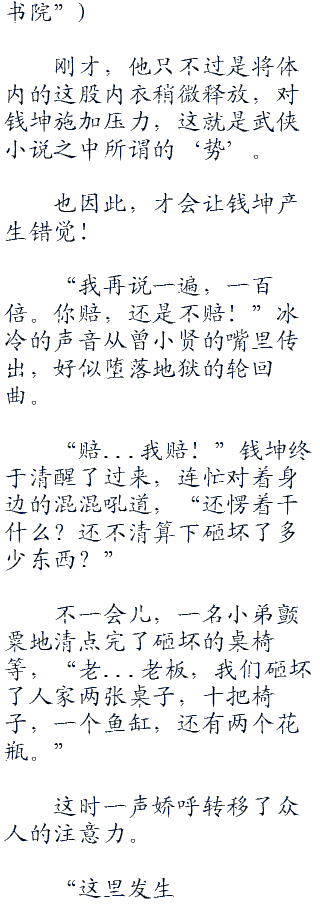 书院”)
刚才，他只不过是将体
内的这股内衣稍微释放，对
钱坤施加压力，这就是武侠
小说之中所谓的‘势’。
也因此，才会让钱坤产
生错觉！
“我再说一遍，一百
倍。你赔，还是不赔！”冰
冷的声音从曾小贤的嘴里传
出，好似堕落地狱的轮回
曲。
“赔...我赔！”钱坤终
于清醒了过来，连忙对着身
边的混混吼道，“还愣着干
什么？还不清算下砸坏了多
少东西？”
不一会儿，一名小弟颤
栗地清点完了砸坏的桌椅
等，“老...老板，我们砸坏
了人家两张桌子，十把椅
子，一个鱼缸，还有两个花
瓶。”
这时一声娇呼转移了众
人的注意力。
“这里发生